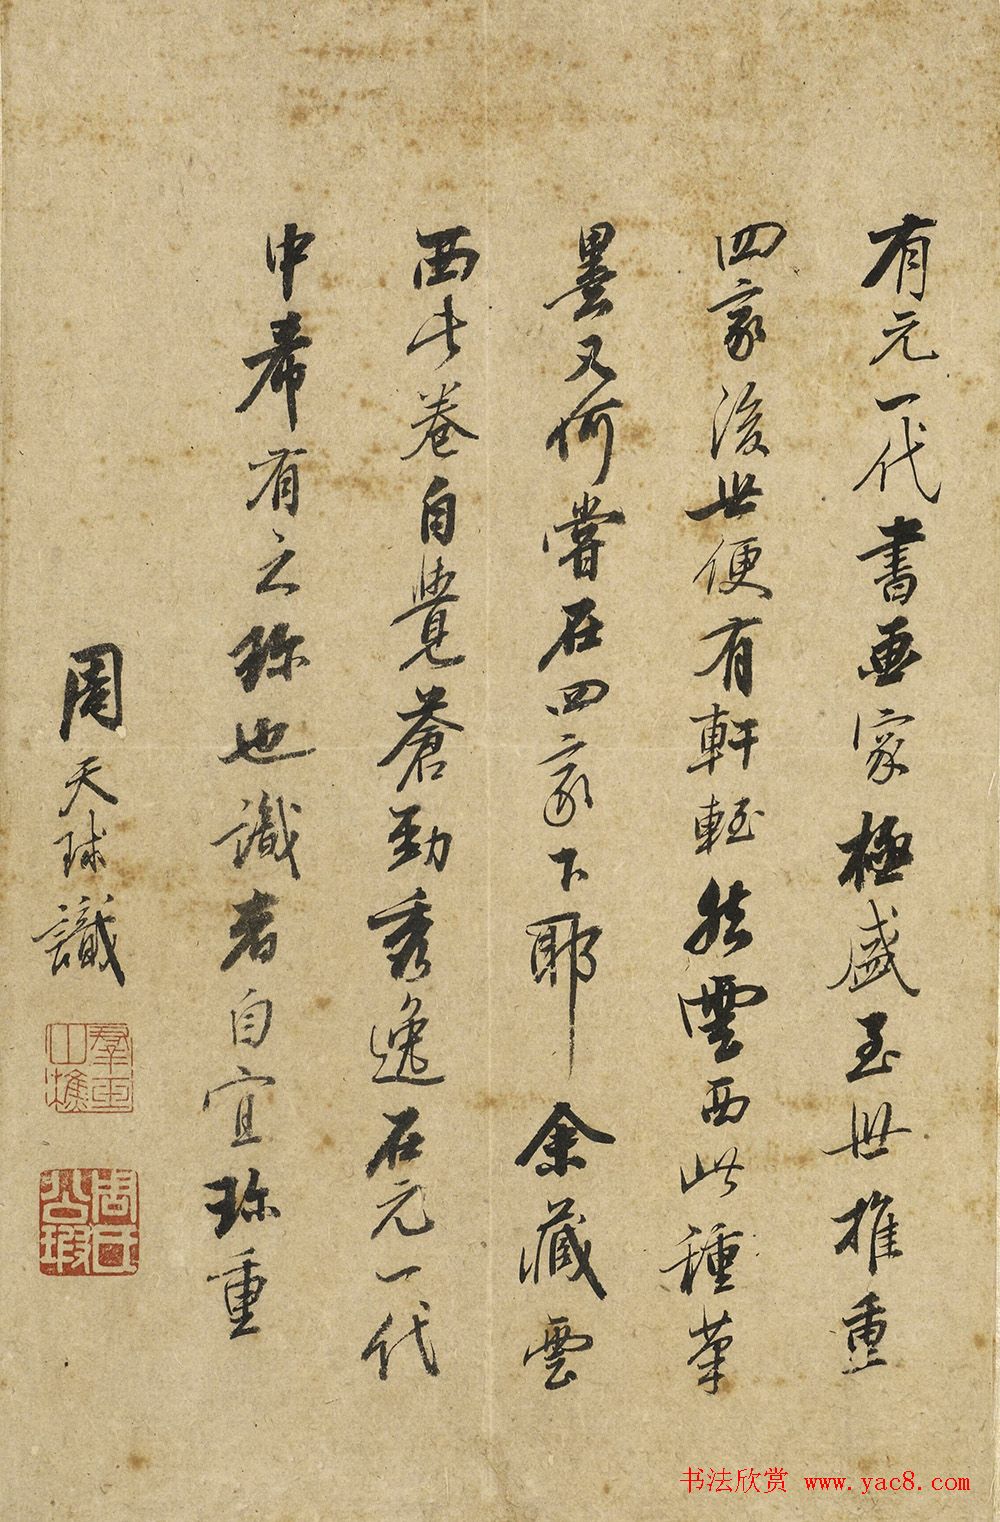 有元一代書画家極盛至世推重
四家後世便有軒輊然雲西此種筆
墨又何嘗在四家下耶余藏雲
西此卷自覺蒼勁秀逸在元一代
中希有之珎也識者自宜珎重
周天球識
羣玉山樵
周氏公瑕
书法欣赏 www.yac8.com